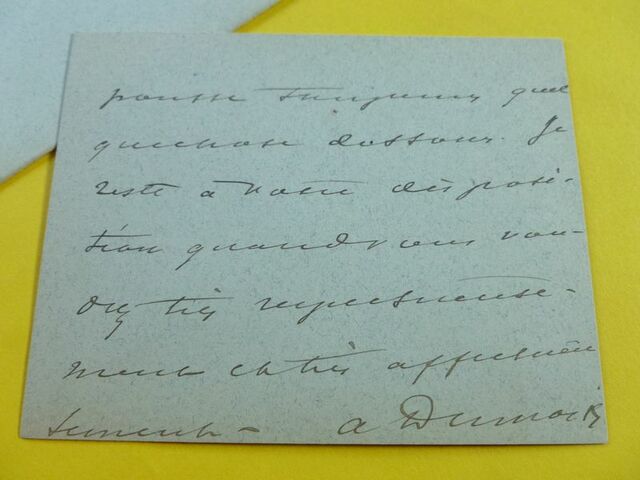 pousse toujours quel
quechose dessous. Je
reste à votre disposi-
tion quand vous vou-
drez très respectueuse-
ment et très affectueu
sement - a Dumas